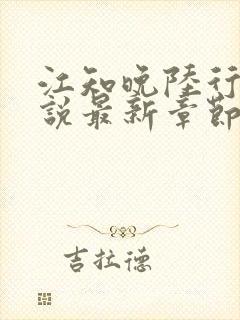 江知晚陸行
說最新章節
吉拉德